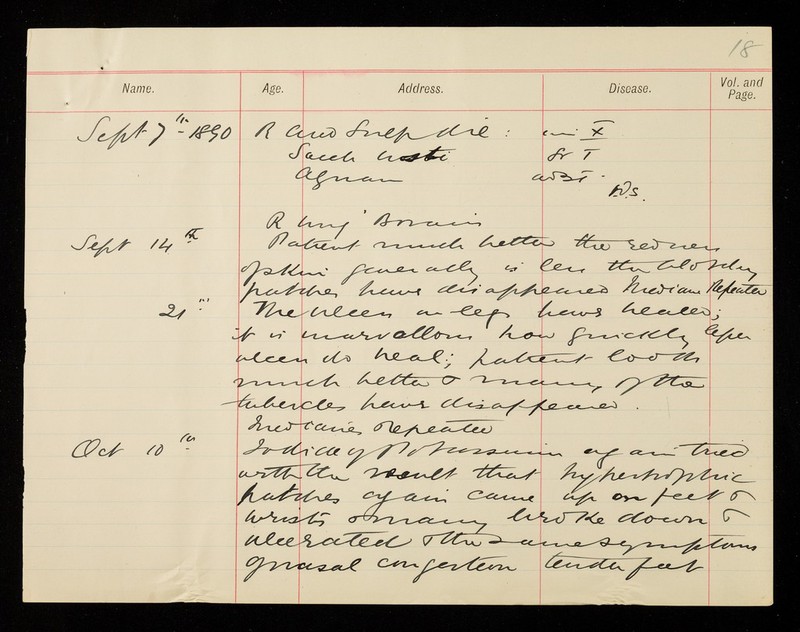 18
Name. Age. Address. Disease. Vol. and Page.
Sept 7th 1890 R Acid Sulph dil : mi X
Sacch gr I
Aquam ad ℥I.
t.d.s.
R ung Boracis
Sept 14th Patient much better the redness
of skin generally is less the blotchy
patches have disappeared Medicine Repeated
21st The ulcers on legs have healed;
it is marvellous how quickly leper
ulcers do heal; patient looks
much better & many of the
tubercles have disappeared.
Medicines repeated
Oct 10th Iodide of Potassium again tried
with the result that hypertrophic
patches again came up on feet &
wrists & many broke down &
ulcerated & the same symptoms
of nasal congestion tender feet